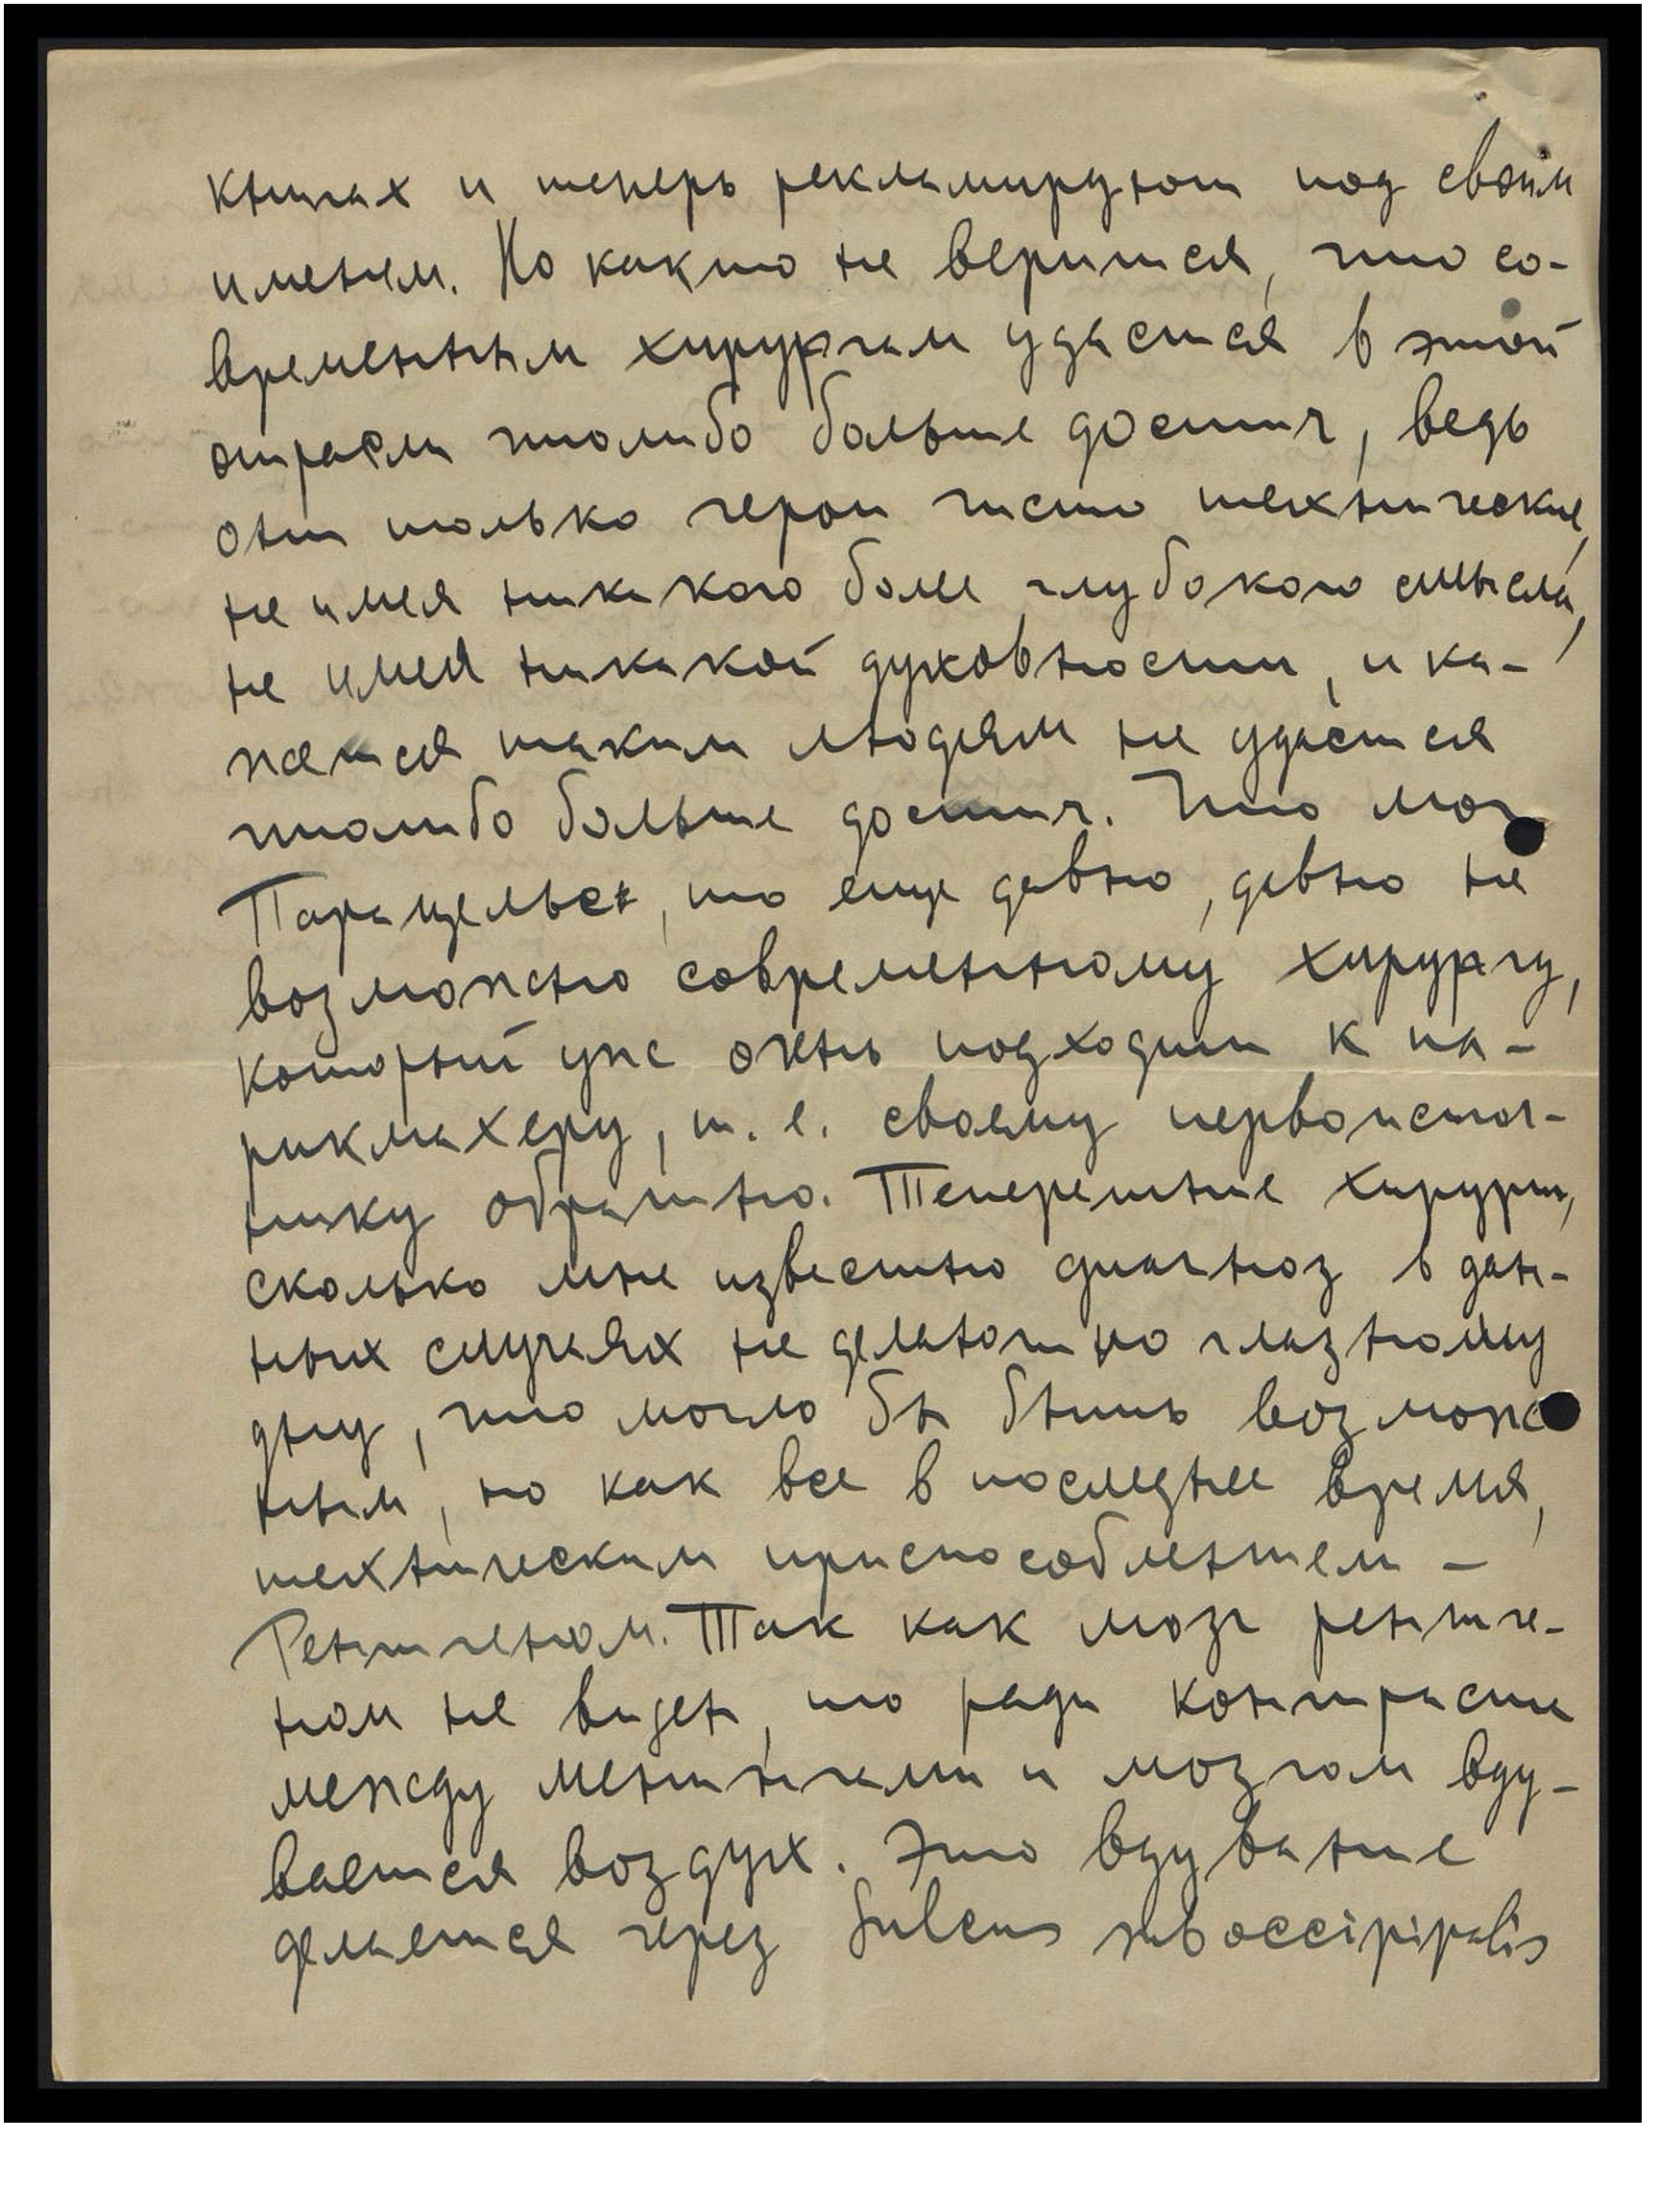 книгах и теперь рекламируют под своим
именем. Но как то не верится, что со-
временным хирургам удастся в этой
отрасли чтолибо больше достич, ведь
они только герои чисто технические,
не имея никакого более глубокого смысла,
не имея никакой духовности, и ка-
жется таким людям не удастся
чтолибо больше достич. Что мог
Парацельс, то еще давно, давно не
возможно современному хирургу,
который уже опять подходит к па-
рикмахеру, т. е. своему первоисточ-
нику обратно. Теперешние хирурги,
сколько мне известно диагноз в дан-
ных случаях не делают по глазному
дну, что могло бы быть возмож
ным, но как все в последнее время,
техническим приспособлением –
Рентгеном. Так как мозг рентге-
ном не виден, то ради контраста
между менингами и мозгом вду-
вается воздух. Это вдувание
делается через Sulcus suboccipipalis